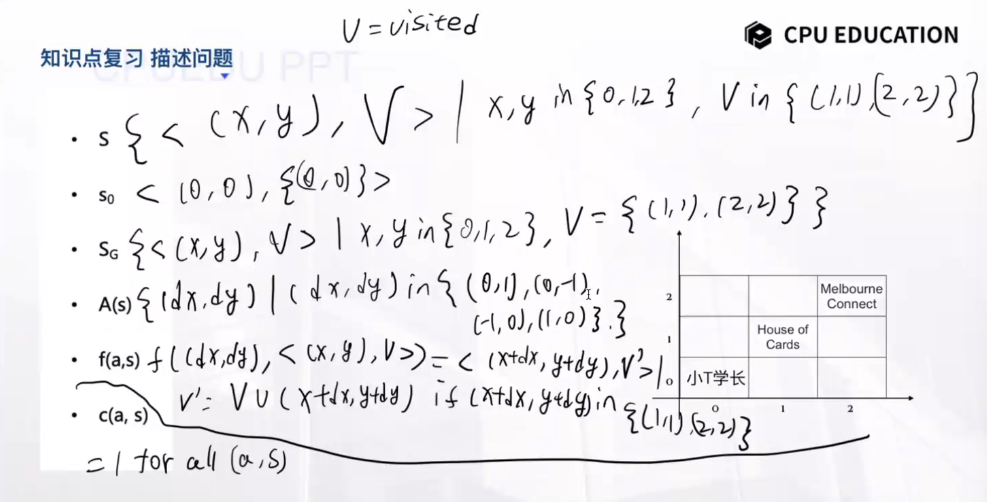 V = visited
CPU EDUCATION
知识点复习 描述问题
CPUEDU PPT
• S {< (x,y), V > | x,y in {0,1,2}, V in {(1,1),(2,2)}}
• S₀ < (0,0), {(0,0)}>
• S_G {<(x,y), V> | x,y in{0,1,2}, V = {(1,1),(2,2)}}
• A(s) {(dx,dy) | (dx,dy) in {(0,1),(0,-1),
(-1,0),(1,0)}.}
• f(a,s) f((dx,dy), <(x,y),V>) = < (x+dx, y+dy), V'> |
V' = V ∪ (x+dx, y+dy) if (x+dx, y+dy) in {(1,1),(2,2)}
• c(a, s)
= 1 for all (a,s)
2
Melbourne
Connect
1
House of
Cards
0
小T学长
0 1 2